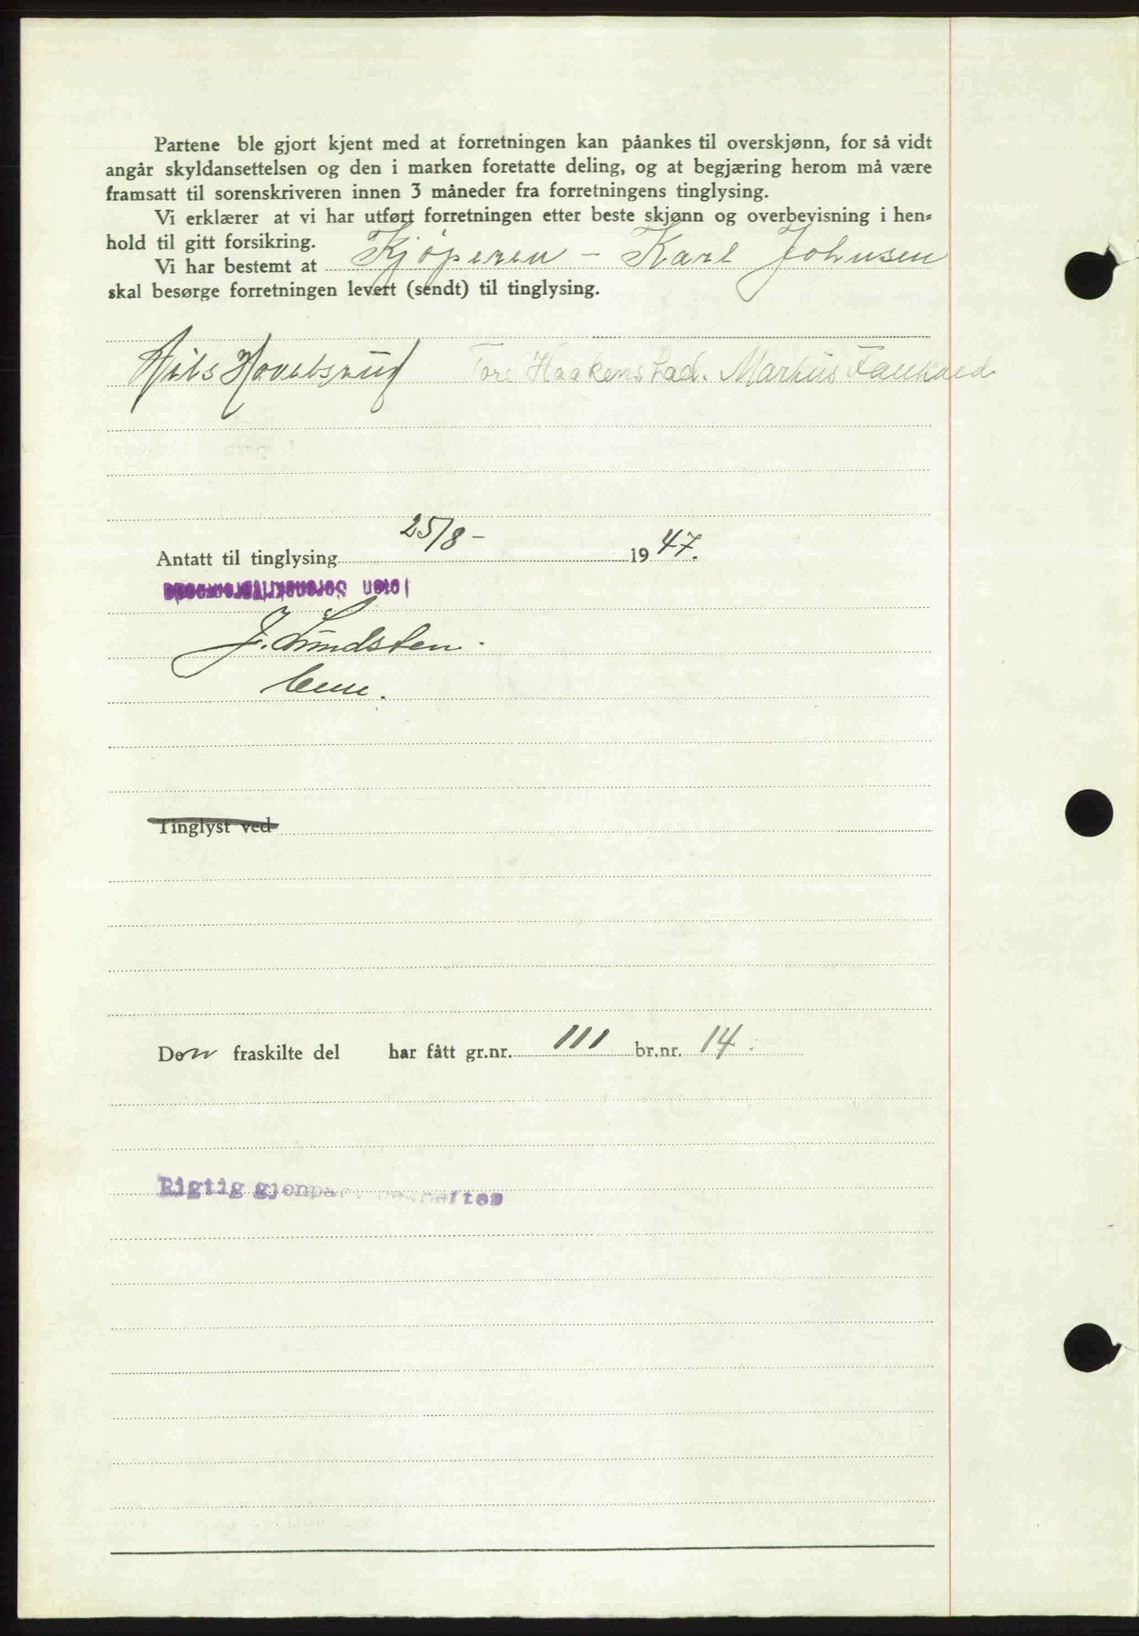 Partene ble gjort kjent med at forretningen kan påankes til overskjønn, for så vidt
angår skyldansettelsen og den i marken foretatte deling, og at begjæring herom må være
framsatt til sorenskriveren innen 3 måneder fra forretningens tinglysing.
Vi erklærer at vi har utført forretningen etter beste skjønn og overbevisning i hen=
hold til gitt forsikring.
Vi har bestemt at Kjöperen - Karl Johnsen
skal besørge forretningen levert (sendt) til tinglysing.
Nils Hovelsrud Tore Haakenstad. Marhus
Antatt til tinglysing 25/8- 1947.
Toten Sorenskriverembede
J. Sundsten.
Tinglyst ved
Den fraskilte del har fått gr.nr. 111 br.nr. 14.
Rigtig gjenpart bekreftes